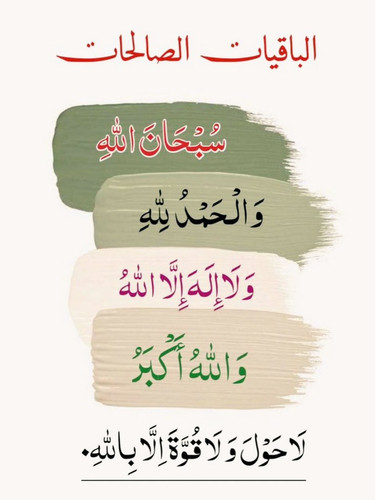 الباقيات الصالحات
سُبْحَانَ اللهِ
وَالْحَمْدُ لِلهِ
وَلَا إِلَهَ إِلَّا اللهُ
وَاللهُ أَكْبَرُ
لَا حَوْلَ وَلَا قُوَّةَ اِلَّا بِاللهِ.